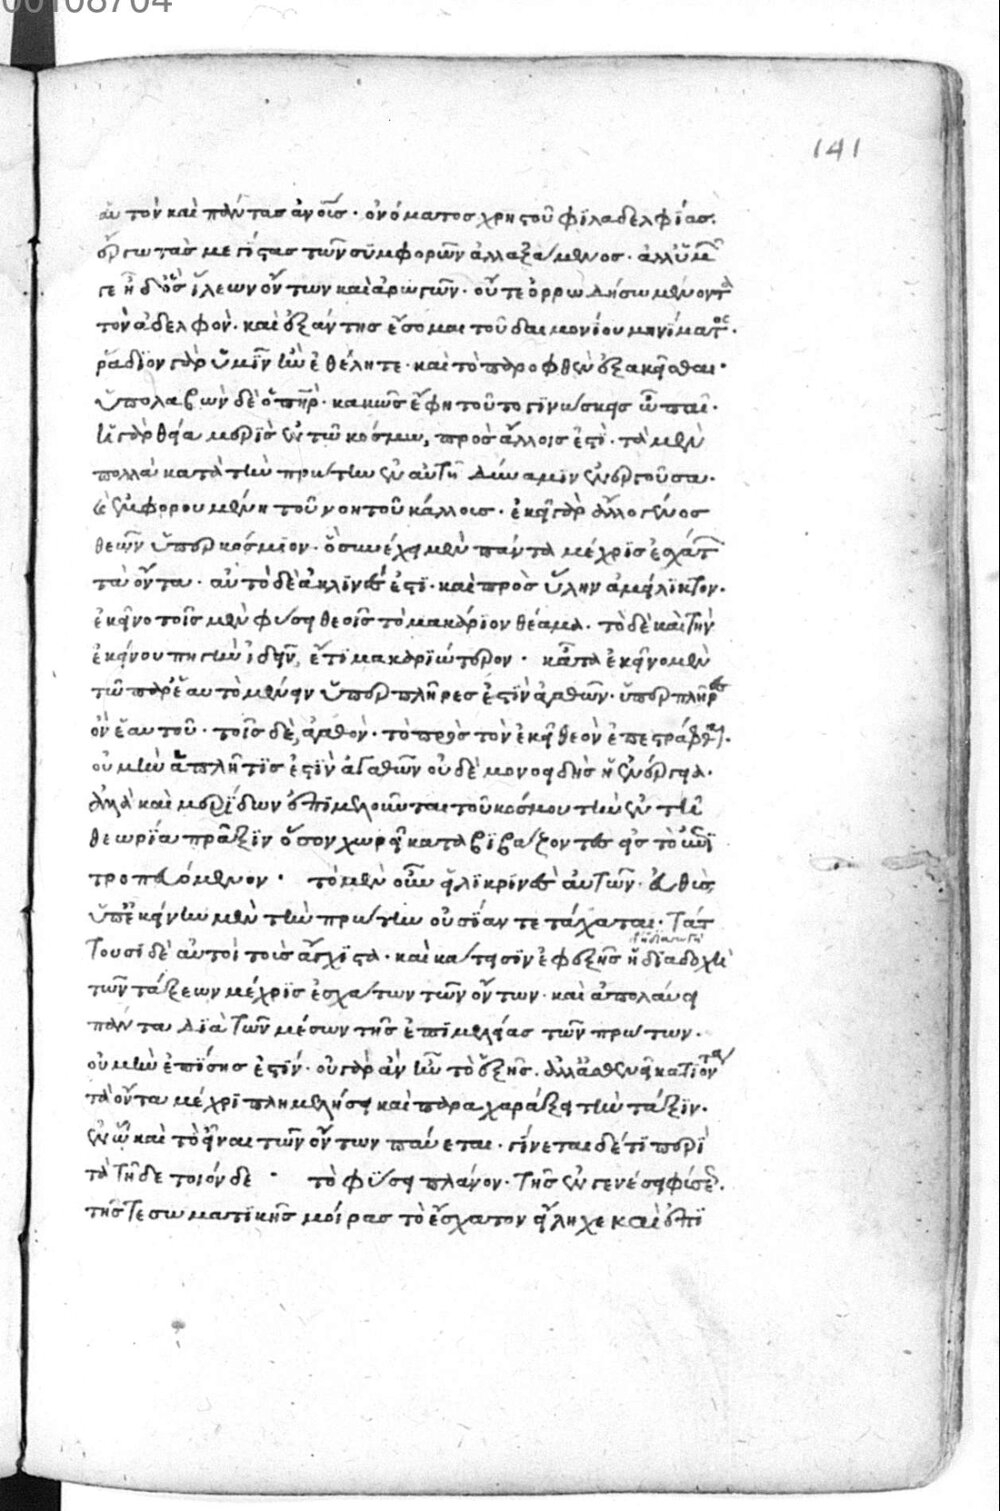 00108704
141
αὐτὸν καὶ πάντας ἀνοῖς· ὀνόματος χρηστοῦ φϊλαδελφίας.
ἔρωτας μεγίστας τῶν συμφορῶν ἀλλαξάμενος· ἀλλ' ὑμῖ
γε ἢ δὸς ἵλεων ὄντων καὶ ἀρωγῶν· οὔτε ὀρρωδήσω μένοντα
τὸν ἀδελφόν· καὶ ἐξάντης ἔσομαι τοῦ δαιμονίου μηνίματος·
ῥάδϊον γὰρ ὑμῖν ἢν ἐθέλητε· καὶ τὸ παροφθὲν ἐξακεῖσθαι·
ὑπολαβὼν δὲ ὁ πηρ· κακῶς ἔφη τοῦτο γϊνώσκεις ὦ παῖ·
ἡ γὰρ θεία μερὶς ἐν τῶ κόσμω, πρὸς ἄλλοις ἐστί· τὰ μὲν
πολλὰ κατὰ τὴν πρώτην ἐν αὐτῆ δύναμϊν ἐνεργοῦσα·
καὶ ἐμφορουμένη τοῦ νοητοῦ κάλλους· ἐκεῖ γὰρ ἄλλο γένος
θεῶν ὑπερκόσμϊον· ὃ συνέχει μὲν πάντα μέχρϊς ἐσχάτ
τὰ ὄντα· αὐτὸ δὲ ἀκλϊνές ἐστϊ· καὶ πρὸς ὕλην ἀμείλϊκτον·
ἐκεῖνο τοῖς μὲν φύσει θεοῖς τὸ μακάρϊον θέαμα· τὸ δὲ καὶ τὴν
ἐκείνου πηγὴν ἰδεῖν, ἔτϊ μακαρϊώτερον· κἄτα ἐκεῖνο μὲν
τῶ παρ' ἑαυτὸ μένειν ὑπερπλῆρες ἐστϊν ἀγαθῶν· ὑπερπλῆρες
ὂν ἑαυτοῦ· τοῖς δὲ, ἀγαθόν· τὸ πρὸς τὸν ἐκεῖ θεὸν ἐπεστράφθαι·
οὐ μὴν ἁπλῆ τϊς ἐστϊν ἀγαθῶν οὐδὲ μονοειδὴς ἡ ἐνέργεια·
ἀλλὰ καὶ μερίδων ἐπϊμελοῦνται τοῦ κόσμου τὴν ἐν τῆ
θεωρία πρᾶξϊν ὅσον χωρεῖ καταβϊβάζοντες εἰς τὸ
τροπευόμενον· τὸ μὲν οὖν εἰλϊκρϊνὲς αὐτῶν· εὐθὺς
ὑπ' ἐκείνην μὲν τὴν πρώτην οὐσίαν τετάχαται· τάτ
τουσϊ δὲ αὐτοὶ τοὺς ἄγχϊστα· καὶ κάτεισϊν ἐφεξῆς ἡ διαδοχὴ
τῶν τάξεων μέχρϊς ἐσχάτων τῶν ὄντων· καὶ ἀπολαύει
πάντα δϊὰ τῶν μέσων τῆς ἐπϊμελείας τῶν πρώτων·
οὐ μὴν ἐπίσης ἐστίν· οὐ γὰρ ἂν ἦν τὸ ἑξῆς· ἀλλὰ ἀσθενεῖ κατϊόντα
τὰ ὄντα μέχρϊ πλημμελήσει καὶ παραχαράξει τὴν τάξϊν·
ἐν ὧ καὶ τὸ εἶναι τῶν ὄντων παύεται· γίνεται δέ τϊ περὶ
τὰ τῆδε τοιόνδε· τὸ φύσει πλάνον· τῆς ἐν γενέσει φύσε·
τῆς τε σωματϊκῆς μοίρας τὸ ἔσχατον εἴληχε καὶ ἐπϊ